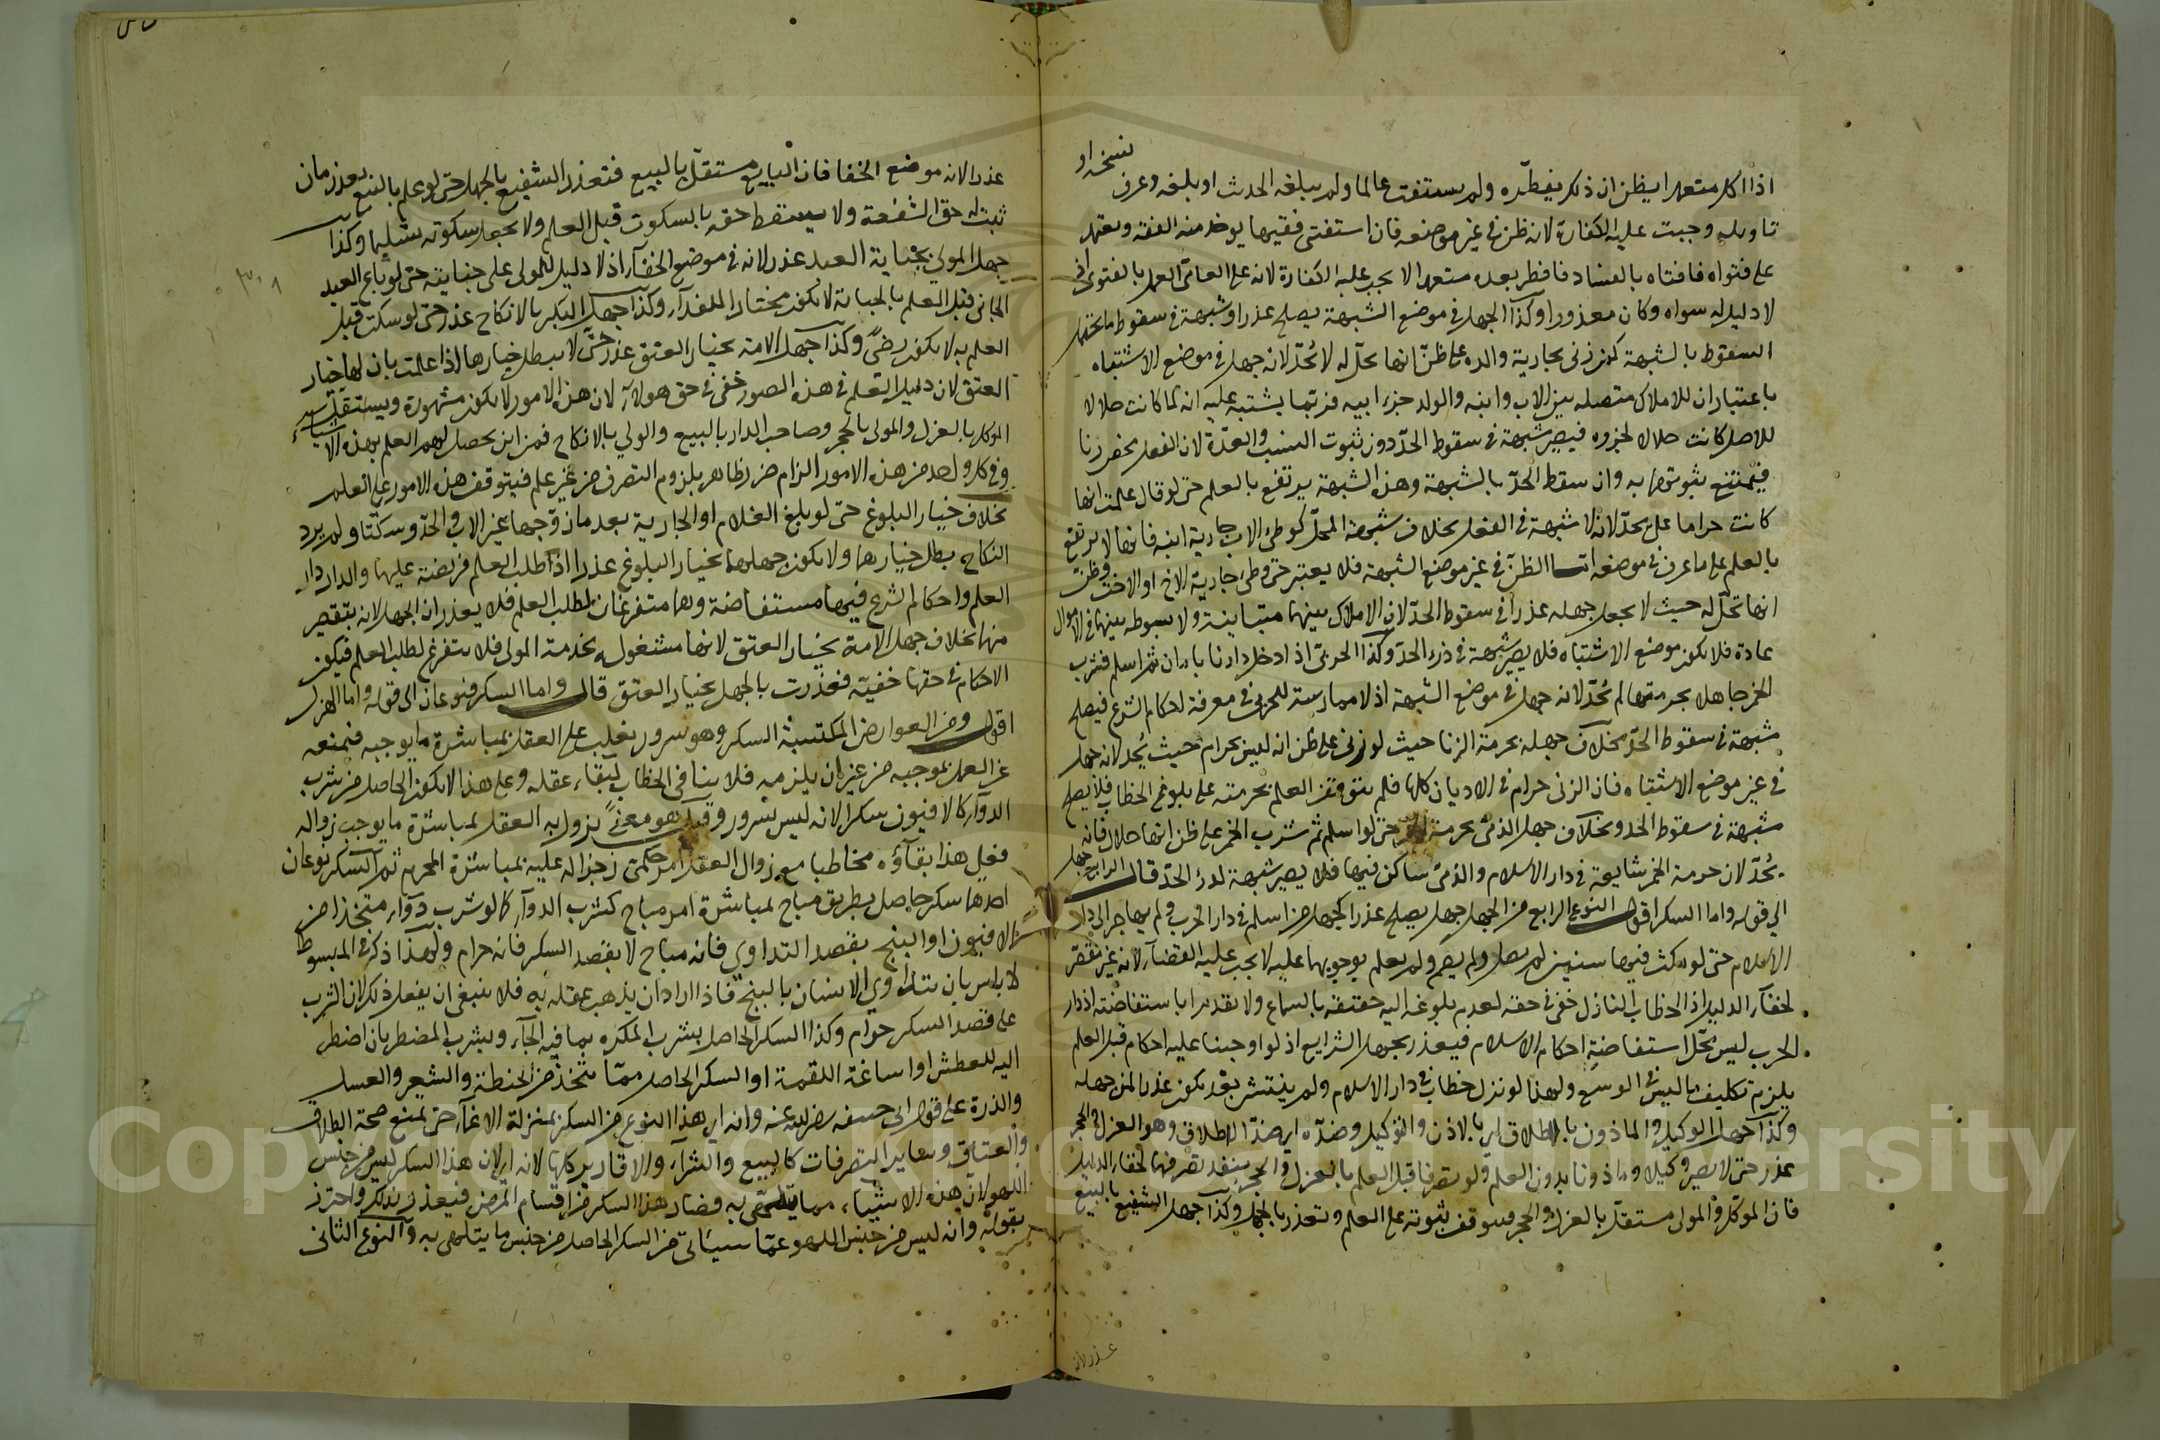 نسخه او
اذا اكل متعمدا يظن ان ذلك يفطره ولم يستفت عالما ولم يبلغه الحدث او بلغه وعرف
تاويله وجبت عليه الكفارة لانه ظن في غير موضعه فان استفتى فقيها يوخذ منه الفقه ويعتمد
على فتواه فافتاه بالفساد فافطر بعده متعمدا لا يجب عليه الكفارة لانه على العامي العمل بالفتوى اذ
لا دليل له سواه وكان معذورا وكذا الجهل في موضع الشبهة يصلح عذرا وشبهة في سقوط ما يحتمل
السقوط بالشبهة كمن زنى بجارية والده على ظن انها تحل له لا يحد لانه جهل في موضع الاشتباه
باعتبار ان للاملاك متصله بين الاب وابنه والولد جزء ابيه فربما يشتبه عليه انه لما كانت حلالا
للاصل كانت حلالا لجزوه فيصير شبهة في سقوط الحد دون ثبوت النسب والعدة لان الفعل محض زنا
فيمتنع ثبوتهما به وان سقط الحد بالشبهة وهذه الشبهة يرتفع بالعلم حتى لو قال علمت انها
كانت حراما على يحد لانه لا شبهة في الفعل بخلاف شبهة المحل كوطئ الاب جارية ابنه فانها لا يرتفع
بالعلم على ما عرف في موضعه اما الظن في غير موضع الشبهة فلا يعتبر حتى وطئ جارية الاخ او الاخت وظن
انها تحل له حيث لا يجعل جهله عذرا في سقوط الحد لان الاملاك بينهما متباينة ولا بسوطه بينهما في الاموال
عادة فلا يكون موضع الاشتباه فلا يصير شبهة في درء الحد وكذا الحربى اذا دخل دارنا بامان ثم اسلم فشرب
الخمر جاهلا بحرمتها لم يحد لانه جهل في موضع الشبهة اذ لا ممارسة للحربى في معرفة احكام الشرع فيصلح
شبهة في سقوط الحد بخلاف جهله بحرمة الزنا حيث لو زنى على ظن انه ليس بحرام حيث يحد لانه جهل
في غير موضع الاشتباه فان الزنى حرام في الاديان كلها فلم يتوقف العلم بحرمته على بلوغ الخطاب فلا يصلح
شبهة في سقوط الحد وبخلاف جهل الذمى بحرمة الخمر حتى لو اسلم ثم شرب الخمر على ظن انها حلال فانه
يحد لان حرمة الخمر شايعة في دار الاسلام والذمى ساكن فيها فلا يصير شبهة لدرء الحد قال الرابع جهل
الى قوله واما السكر اقول النوع الرابع من الجهل جهل يصلح عذرا كجهل من اسلم في دار الحرب ولم يهاجر الى دار
الاسلام حتى لو مكث فيها سنين لم يصل ولم يصم ولم يعلم بوجوبها عليه لا يجب عليه القضاء لانه غير مقصر
لخفاء الدليل اذ الخطاب النازل خفى في حقه لعدم بلوغه اليه حقيقة بالسماع ولا تقديرا باستفاضته اذ دار
الحرب ليس محل استفاضة احكام الاسلام فيعذر بجهل الشرايع اذ لو اوجبنا عليه احكام قبل العلم
يلزم تكليف ما ليس في الوسع ولهذا لو نزل خطاب في دار الاسلام ولم ينتشر بعد يكون عذرا لمن جهله
وكذا جهل الوكيل والماذون بالاطلاق اي بالاذن والتوكيل وضده اي ضد الاطلاق وهو العزل والحجر
عذر حتى لا يصير وكيلا وماذونا بدون العلم ولو تصرفا قبل العلم بالعزل والحجر ينفد تصرفهما لخفاء الدليل
فان الموكل والمولى مستقل بالعزل والحجر فيتوقف ثبوته على العلم ويعذر بالجهل وكذا جهل الشفيع بالبيع
عذر لانه
عذر لانه موضع الخفا فان البايع مستقل بالبيع فتعذر الشفيع بالجهل حتى لو علم بالبيع بعد زمان
ثبت له حق الشفعة ولا يسقط حقه بالسكوت قبل العلم ولا يجعل سكوته تسليما وكذا
جهل المولى بجناية العبد عذر لانه في موضع الخفاء اذ لا دليل للمولى على جنايته حتى لو باع العبد
الجانى قبل العلم بالجناية لا يكون مختارا للفداء وكذا جهل البكر بالانكاح عذر حتى لو سكتت قبل
العلم به لا يكون رضى وكذا جهل الامة بخيار العتق عذر حتى لا يبطل خيارها اذا علمت بان لها خيار
العتق لان دليل العلم في هذه الصور خفى في حق هولاء لان هذه الامور لا يكون مشهورة ويستقل
الموكل بالعزل والمولى بالحجر وصاحب الدار بالبيع والولي بالانكاح فمن اين يحصل لهم العلم بهذه الاشياء
وفي كل واحد من هذه الامور الزام ضرر ظاهر بلزوم التصرف من غير علم فيتوقف هذه الامور على العلم
بخلاف خيار البلوغ حتى لو بلغ الغلام او الجارية بعد ما زوجها غير الاب والجد وسكتا ولم يرد
النكاح بطل خيارهما ولا يكون جهلهما بخيار البلوغ عذرا اذ طلب العلم فريضة عليهما والدار دار
العلم واحكام الشرع فيها مستفاضة وهما متفرغان لطلب العلم فلا يعذران بالجهل لانه بتقصير
منهما بخلاف جهل الامة بخيار العتق لانها مشغولة بخدمة المولى فلا يتفرغ لطلب العلم فيكون
الاحكام في حقها خفية فعذرت بالجهل بخيار العتق قال واما السكر فنوعان الى قوله واما الهزل
اقول ومن العوارض المكتسبة السكر وهو سرور يغلب على العقل بمباشرة ما يوجبه فيمنعه
عن العمل بموجبه من غير ان يلزمه فلا ينافى الخطاب لبقاء عقله وعلى هذا لا يكون الحاصل من شرب
الدواء كالافيون سكرا لانه ليس بسرور وقيل هو معنى يزول به العقل بمباشرة ما يوجب زواله
فعلى هذا بقاؤه مخاطبا مع زوال العقل امر حكمى زجرا له عليه بمباشرة المحرم ثم السكر نوعان
احدهما سكر حاصل بطريق مباح بمباشرة امر مباح كشرب الدواء كما لو شرب دواء متخذا من
الافيون او البنج بقصد التداوي فانه مباح لا بقصد السكر فانه حرام ولهذا ذكر في المبسوط
لا باس بان يتداوي الانسان بالبنج فاذا اراد ان يذهب عقله به فلا ينبغى ان يفعل ذلك لان الشرب
على قصد السكر حرام وكذا السكر الحاصل بشرب المكره بما فيه الجاء وبشرب المضطر بان اضطر
اليه للعطش او اساغة اللقمة او السكر الحاصل مما يتخذ من الحنطة والشعير والعسل
والذرة على قول ابى حنيفه رضي الله عنه وانه اي هذا النوع من السكر بمنزلة الاغماء حتى يمنع صحة الطلاق
والعتاق وساير التصرفات كالبيع والشراء والاقارير كلها لانه اي لان هذا السكر ليس من جنس
اللهو لان هذه الاشياء مما يتلهى به فصار هذا السكر من اقسام المرض فيعذر بذلك واحترز
بقوله وانه ليس من جنس اللهو عما سيأتى من السكر الحاصل من جنس ما يتلهى به والنوع الثانى
Copyright © King Saud University